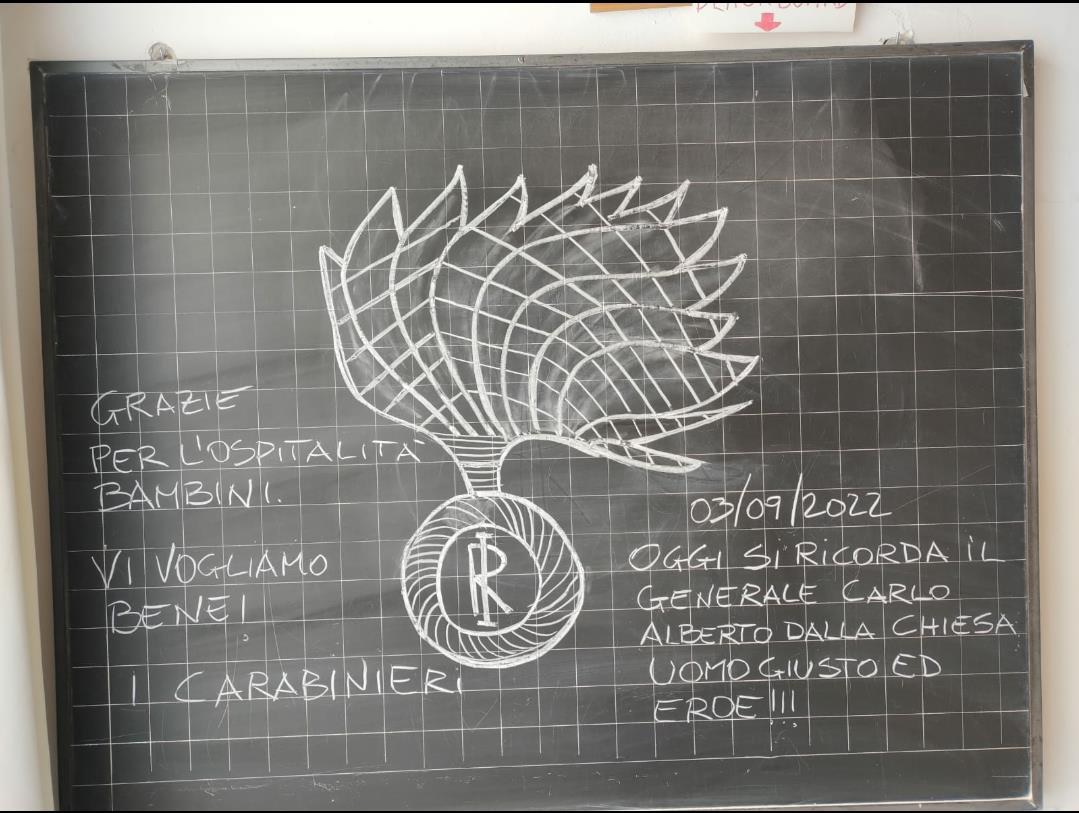 GRAZIE
PER L'OSPITALITÀ
BAMBINI.
VI VOGLIAMO
BENE!
I CARABINIERI
RI
03/09/2022
OGGI SI RICORDA IL
GENERALE CARLO
ALBERTO DALLA CHIESA
UOMO GIUSTO ED
EROE!!!